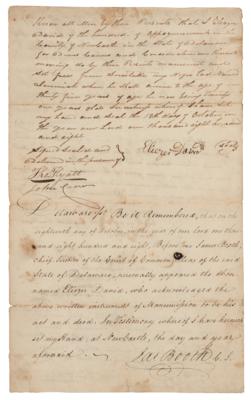 Know all Men by these Presents that I Eliezer
David of the hundred of Appoquinimink in the
County of Newcastle in the State of Delaware
for divers Causes and Considerations me hereunto
moving do by these Presents manumit and
set free from Slavery my Negro lad Named
when he shall arrive to the age of
thirty five years of age he being twenty
one years old
my hand and Seal the 18th day of October in
the year our Lord one thousand eight hundred
and eight
Signed Sealed and
Delivered in the presence of
Eliezer David Seal
Hyatt
John Crow
Delaware ss. Be it Remembered, that on the
eighteenth day of October in the year of our Lord one thou
sand eight hundred and eight, Before me James Booth,
chief Justice of the Court of Common Pleas of the said
State of Delaware, personally appeared the above
named Eliezer David, who acknowledged the
above written instrument of Manumission to be his
act and deed. In Testimony whereof I have hereunto
set my Hand, at Newcastle, the day and year
aforesaid
Jas Booth